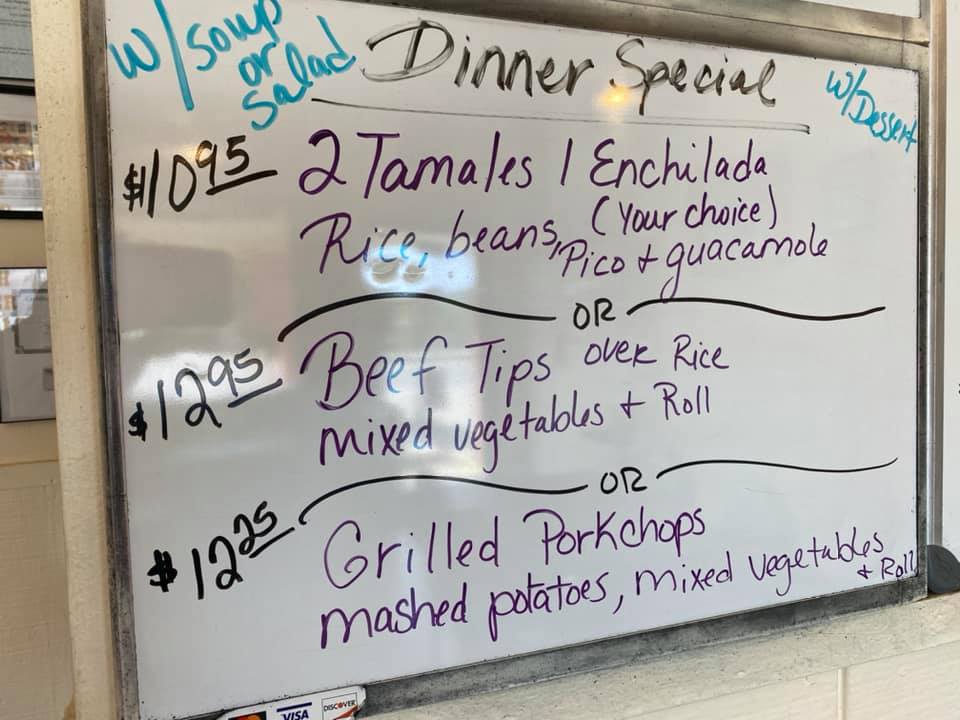 w/soup
or
salad
Dinner Special
w/Dessert
$10.95 2 Tamales 1 Enchilada
(Your choice)
Rice, beans, Pico + guacamole
OR
$12.95 Beef Tips over Rice
mixed vegetables + Roll
OR
$12.25 Grilled Porkchops
mashed potatoes, mixed vegetables
+ Roll
VISA
DISCOVER